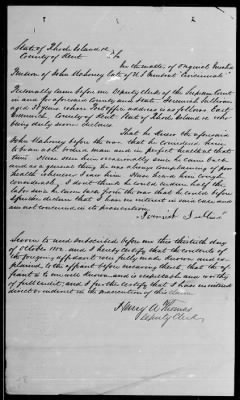 State of Rhode Island sc.
County of Kent
In the matter of Original Invalid
Pension of John Mahoney late of U.S. Gunboat Cincinnati
Personally came before me Deputy Clerk of the Supreme Court
in and for aforesaid County and State Jeremiah Sullivan
aged 38 years whose Post Office address is as follows: East
Greenwich County of Kent State of Rhode Island who
being duly sworn declares
That he knew the aforesaid
John Mahoney before the war that he considered him
to be a sound man and in perfect health at that
time. Have seen him occasionally since he came back
and as a general thing he was always complaining of poor
health whenever I saw him. Have heard him cough
considerably. I don't think he could endure half the
labor since he came back from the war that he could before
I further declare that I have no interest in said case and
am not concerned in its prosecution
Jeremiah Sullivan
Sworn to and subscribed before me this thirtieth day
of October 1882 and I hereby certify that the contents of
the foregoing affidavit were fully made known and ex-
plained to the affiant before swearing thereto, that the af-
fiant is to me well known and is respectable and worthy
of full credit; and I further certify that I have no interest
direct or indirect in the prosecution of this claim
Henry A. Thomas
Deputy Clerk